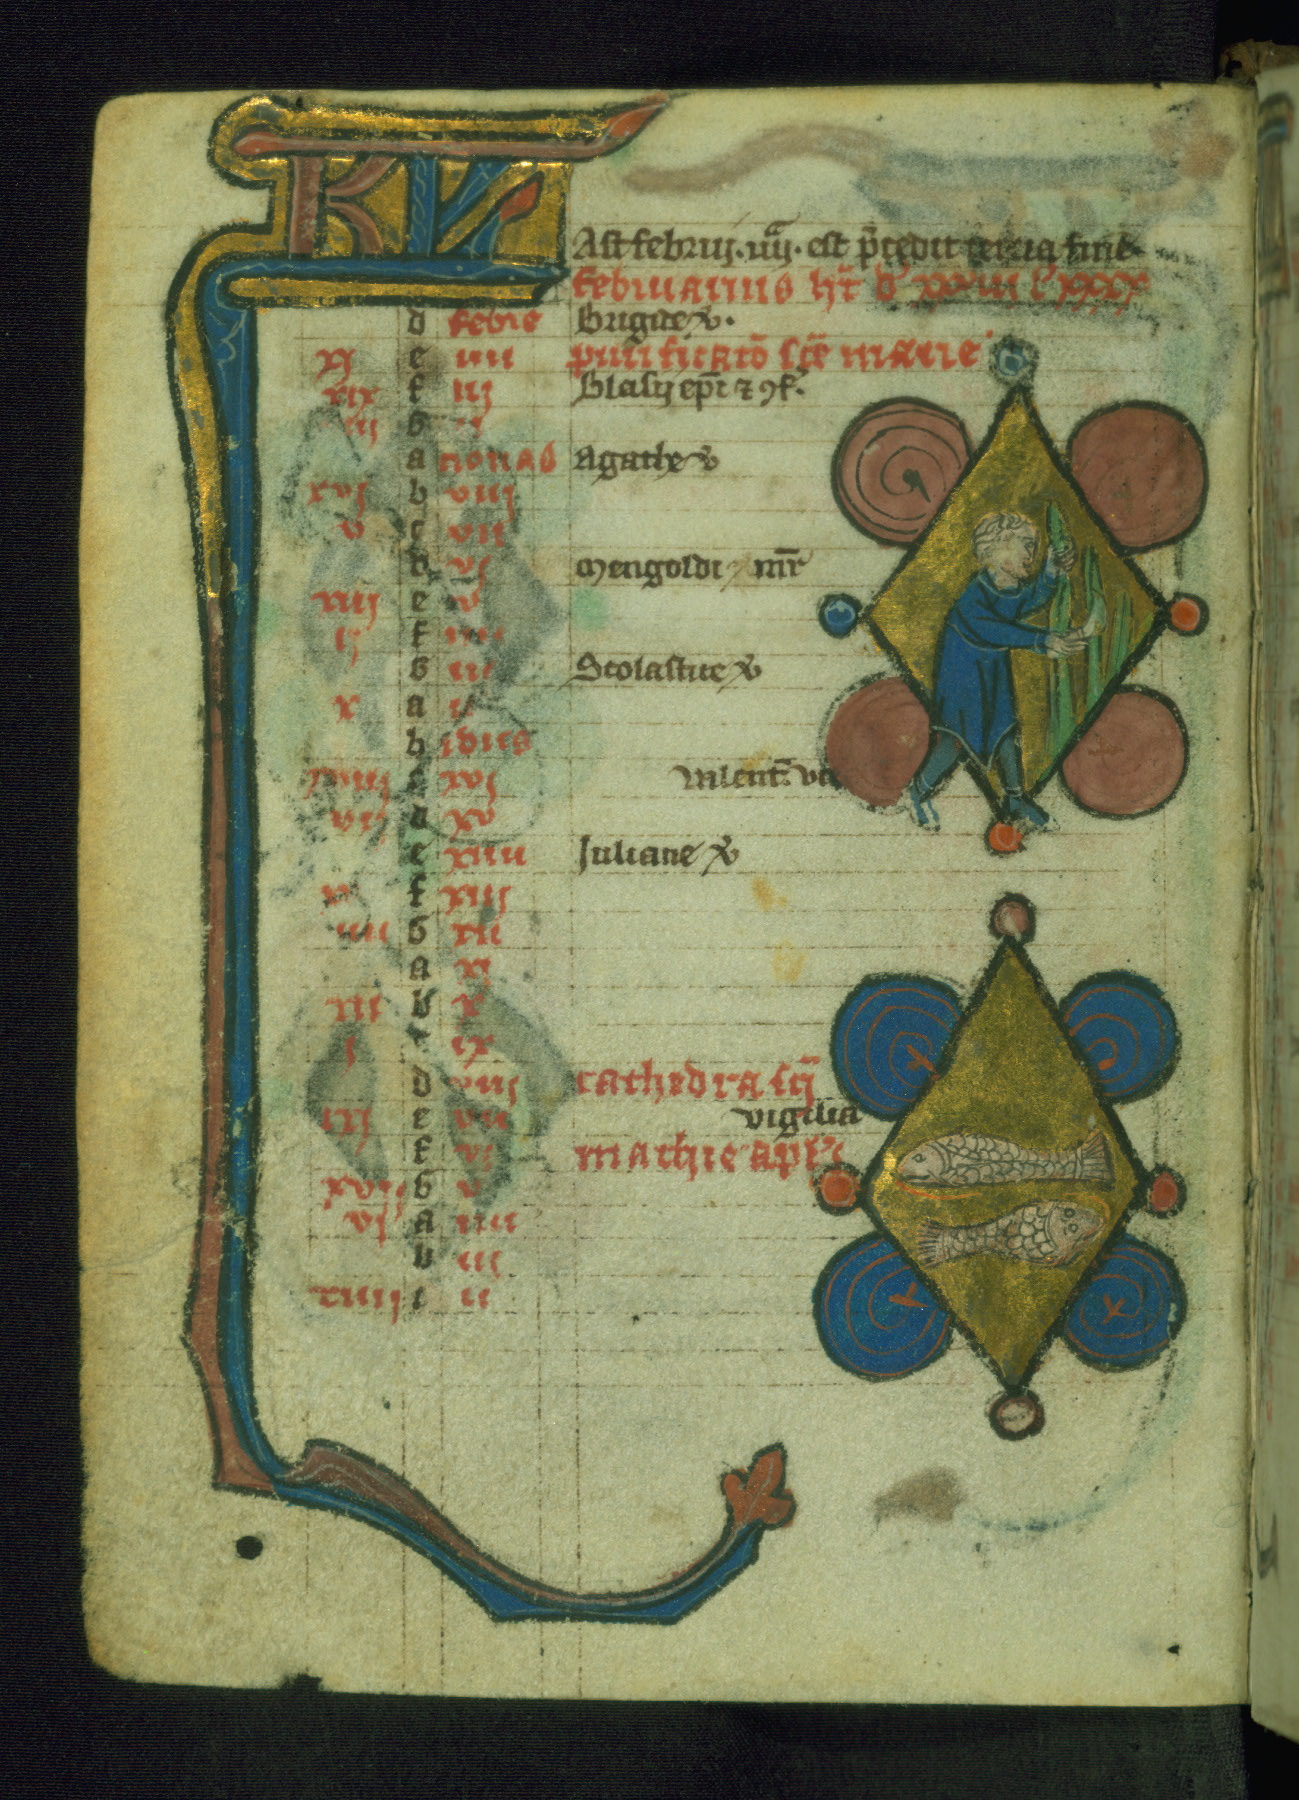 KL
Ast februij. iiij. est p̄cedit tercia fine
februarius h̄t d' xxviij l' xxxx
d febr̄ Brigide v̄.
xj e iiii purificatō scē marie
xix f iij Blasij ep̄i ⁊ ꝯf.
iij G ij
a nonas agathe v̄
xvj b viij
v c vii
d vj mengoldi m̄r
xiij e v
ij f iiii
G iii Scolastice v̄
x a ii
b idus
xviij c xvj valent̄
vij d xv
e xiiii Juliane v̄
xv f xiij
iiii G xii
a xj
xij b x
j c ix
d viij cathedra sc̄i
ix e vii vigilia
f vj mathie apl̄i
xvij G v
vj a iiii
b iii
xiiij c ii